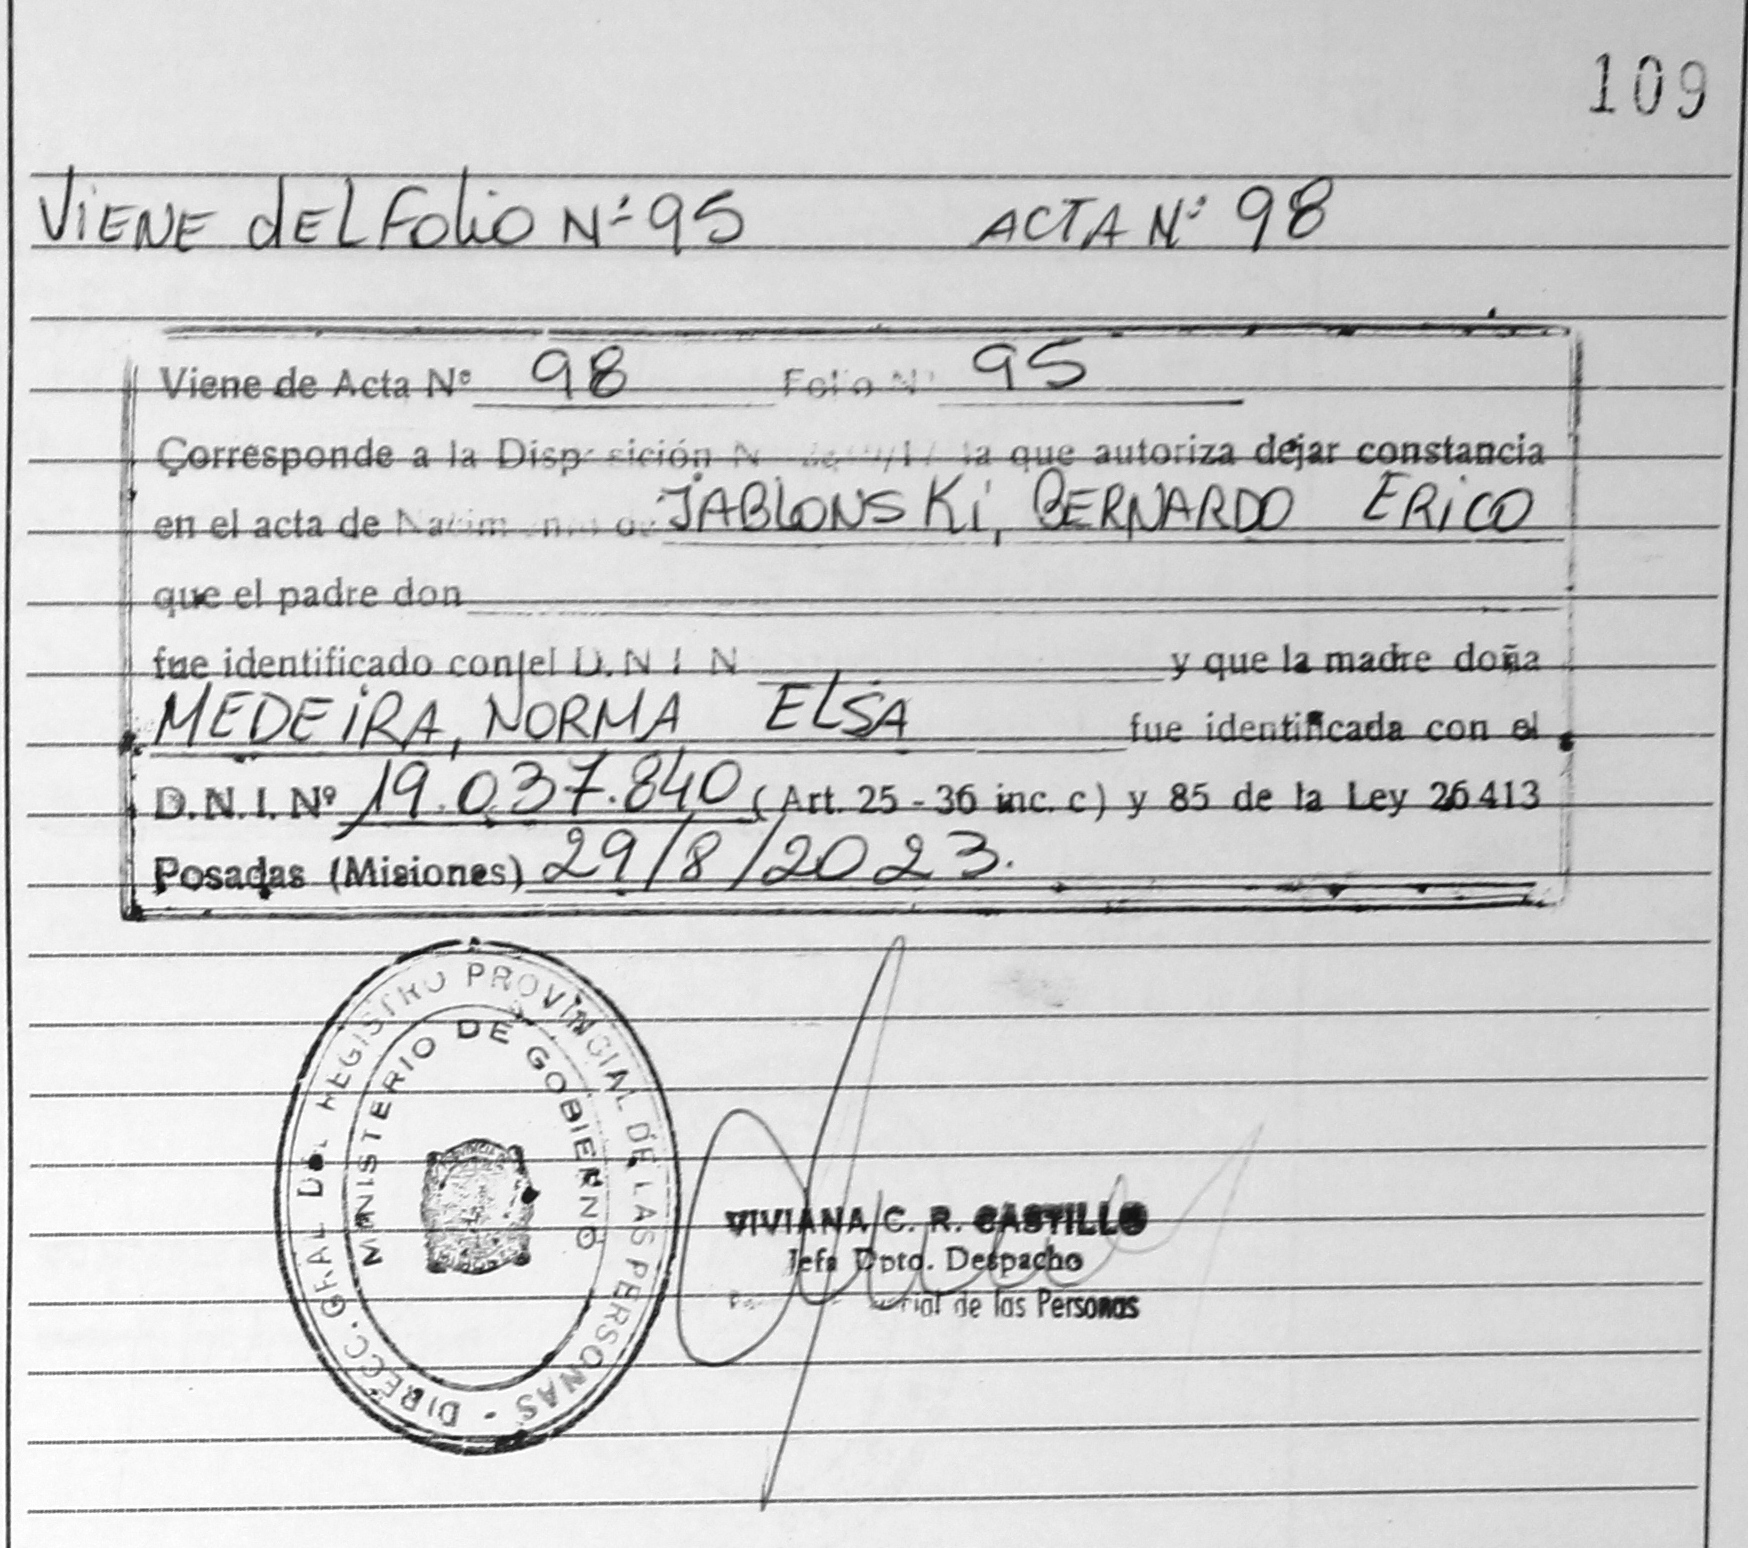 109
VIENE dEL Folio Nº 95 ACTA Nº 98
Viene de Acta Nº 98 Folio Nº 95
Corresponde a la Disposición N la que autoriza dejar constancia
en el acta de Nacimiento de JABLONSKi, BERNARDO ERiCO
que el padre don
fue identificado con el D.N.I. N y que la madre doña
MEDEiRA, NORMA ELSA fue identificada con el
D.N.I. Nº 19.037.840 (Art. 25 - 36 inc. c) y 85 de la Ley 26413
Posadas (Misiones) 29/8/2023.
DIRECC. GRAL DEL REGISTRO PROVINCIAL DE LAS PERSONAS -
MINISTERIO DE GOBIERNO
VIVIANA C. R. CASTILLO
Jefa Dpto. Despacho
de las Personas